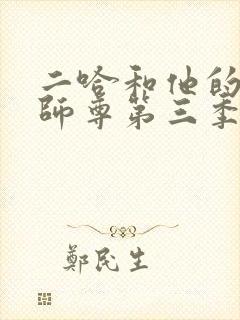 二哈和他的
師尊第三季
鄭民生